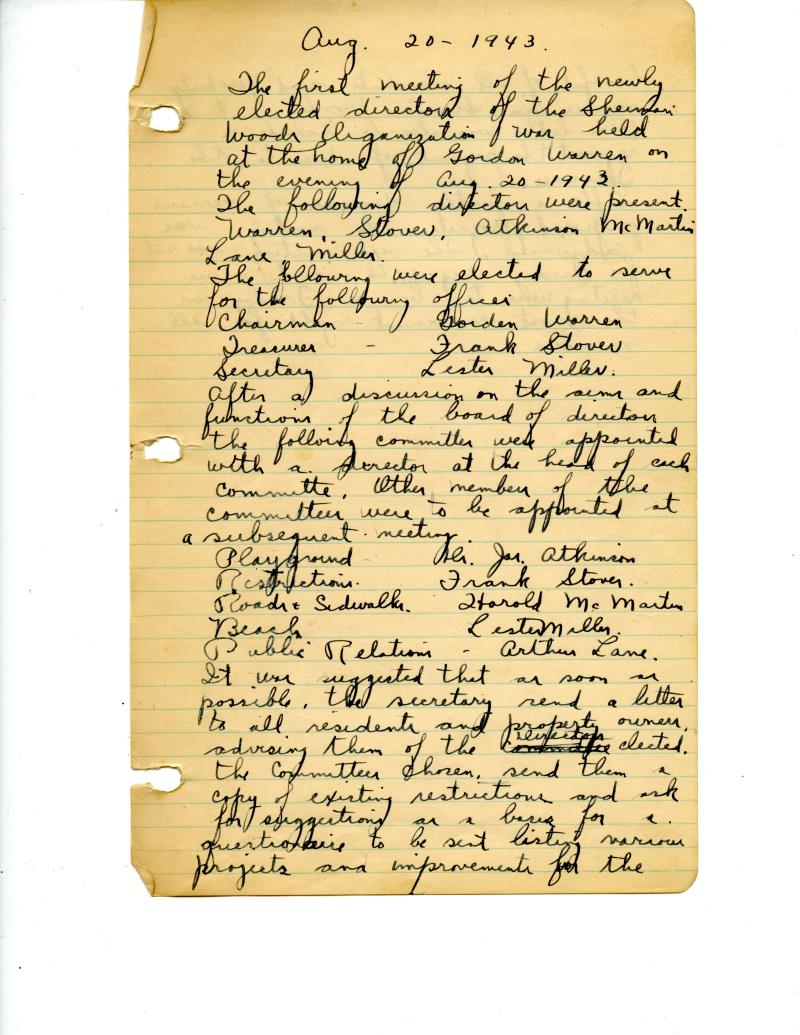 Aug. 20 - 1943.
The first meeting of the newly
elected directors of the Sherman
Woods Organization was held
at the home of Gordon Warren on
the evening of Aug. 20 - 1943.
The following directors were present.
Warren, Stover, Atkinson McMartin
Lane, Miller.
The following were elected to serve
for the following offices
Chairman - Gorden Warren
Treasurer - Frank Stover
Secretary Lester Miller.
After a discussion on the aims and
functions of the board of directors
the folloing committees were appointed
with a director at the head of each
committe. Other members of the
committees were to be appointed at
a subsequent meeting.
Playground - Dr. Jas. Atkinson
Restrictions. Frank Stover.
Roads & Sidwalks. Harold McMartin
Beach Lester Miller.
Public Relations - Arthur Lane.
It was suggested that as soon as
possible, the secretary send a letter
to all residents and property owners,
advising them of the directors elected.
the Committees chosen, send them a
copy of existing restrictions and ask
for suggestions as a basis for a
questionaire to be sent listing various
projects and improvements for the